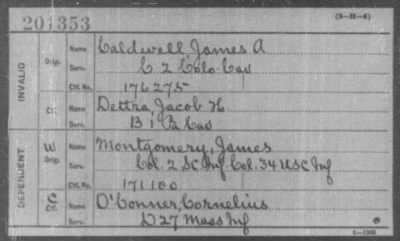 201353
(3-31-6)
INVALID
Orig. Name Caldwell, James A
Serv. C 2 Colo. Cav
Ctf. No. 176275
Ctf. Name Dettra, Jacob H.
Serv. B 1 Cav
DEPENDENT
W Orig. Name Montgomery, James
Serv. Col. 2 SC Inf. Col. 34 USC Inf
Ctf. No. 171100
C Ctf. Name O'Conner, Cornelius
Serv. D 27 Mass Inf